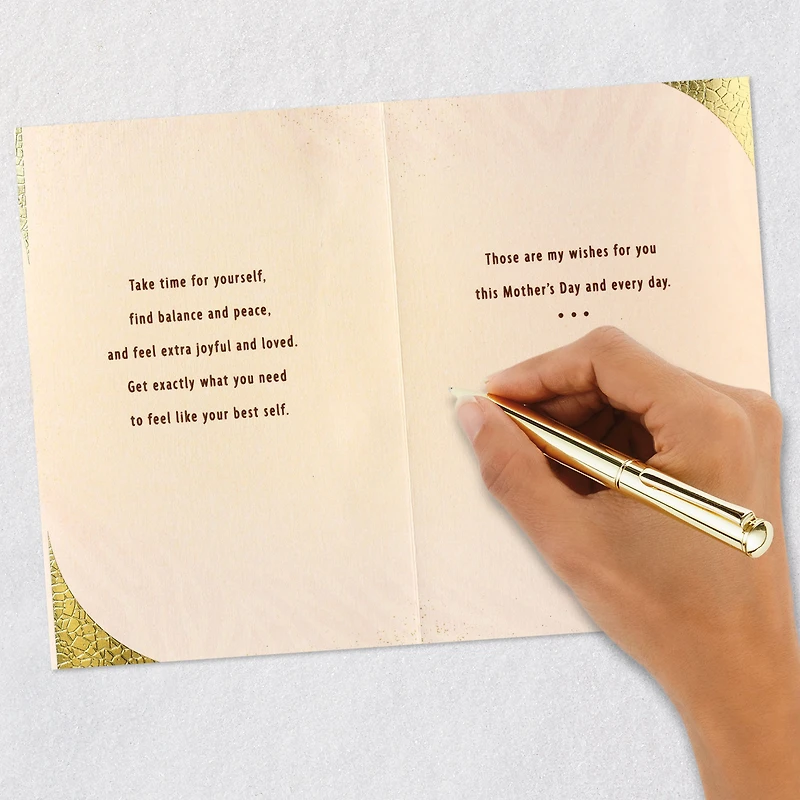 Take time for yourself,
find balance and peace,
and feel extra joyful and loved.
Get exactly what you need
to feel like your best self.
Those are my wishes for you
this Mother's Day and every day.
• • •